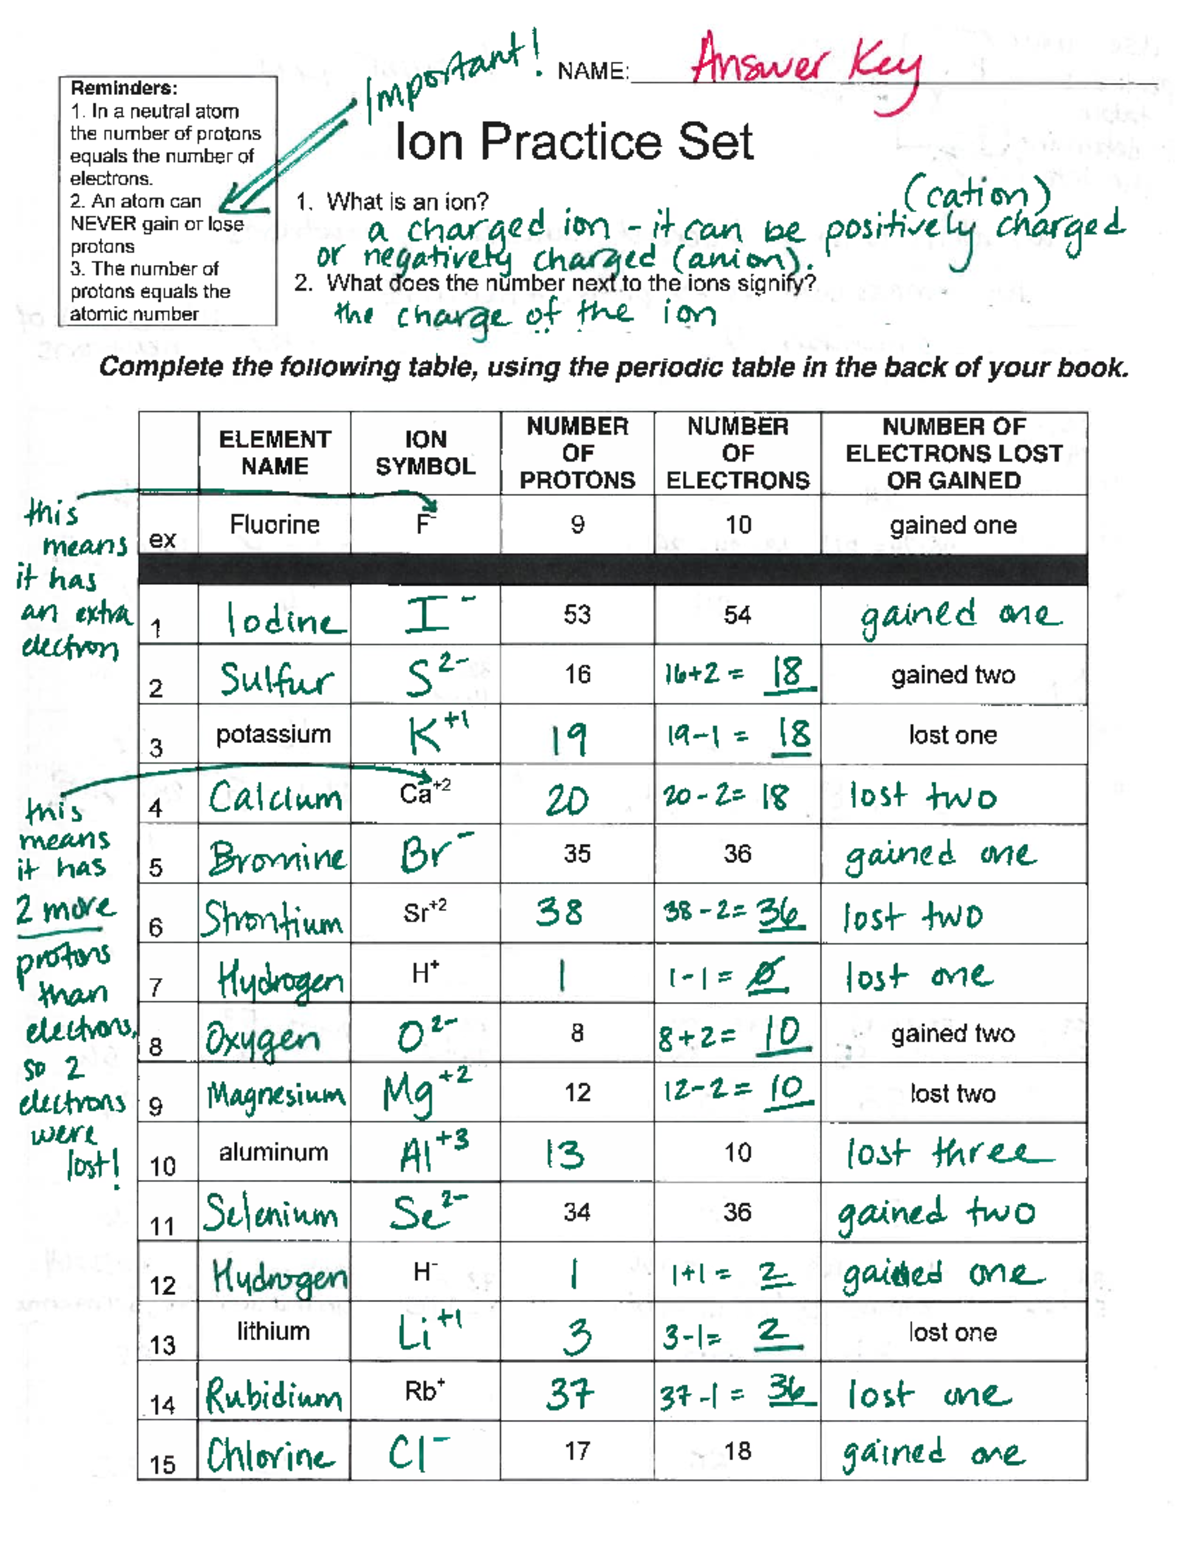 Important!
NAME: Answer Key
Reminders:
1. In a neutral atom
the number of protons
equals the number of
electrons.
2. An atom can
NEVER gain or lose
protons
3. The number of
protons equals the
atomic number
Ion Practice Set
1. What is an ion?
(cation)
a charged ion - it can be positively charged
or negatively charged (anion).
2. What does the number next to the ions signify?
the charge of the ion
Complete the following table, using the periodic table in the back of your book.
ELEMENT NAME ION SYMBOL NUMBER OF PROTONS NUMBER OF ELECTRONS NUMBER OF ELECTRONS LOST OR GAINED
this
means
it has
an extra
electron
ex Fluorine F⁻ 9 10 gained one
1 Iodine I⁻ 53 54 gained one
2 Sulfur S²⁻ 16 16+2 = 18 gained two
3 potassium K⁺¹ 19 19-1 = 18 lost one
4 Calcium Ca⁺² 20 20-2= 18 lost two
5 Bromine Br⁻ 35 36 gained one
6 Strontium Sr⁺² 38 38-2= 36 lost two
7 Hydrogen H⁺ 1 1-1= 0 lost one
8 Oxygen O²⁻ 8 8+2= 10 gained two
9 Magnesium Mg⁺² 12 12-2= 10 lost two
10 aluminum Al⁺³ 13 10 lost three
11 Selenium Se²⁻ 34 36 gained two
12 Hydrogen H⁻ 1 1+1= 2 gained one
13 lithium Li⁺¹ 3 3-1= 2 lost one
14 Rubidium Rb⁺ 37 37-1 = 36 lost one
15 Chlorine Cl⁻ 17 18 gained one
this
means
it has
2 more
protons
than
electrons,
so 2
electrons
were
lost!